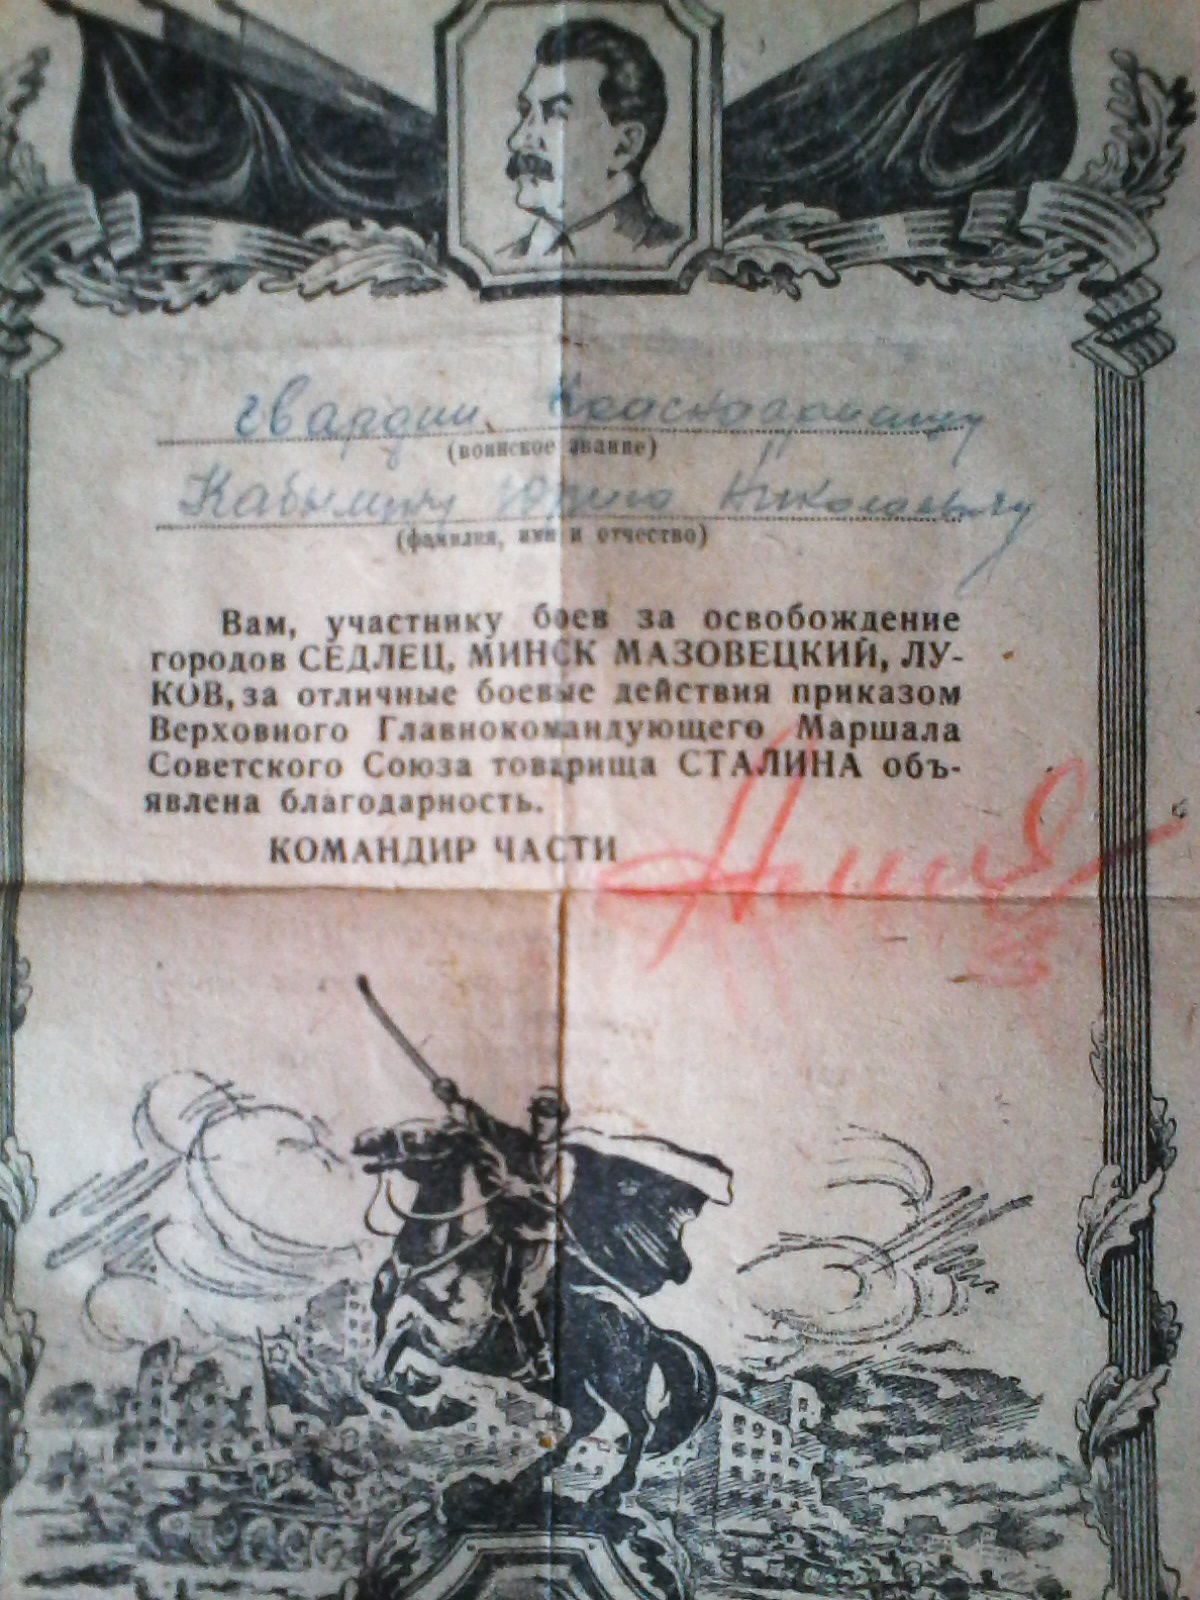 гвардии Красноармейцу
(воинское звание)
Юрию Николаевичу
(фамилия, имя и отчество)
Вам, участнику боев за освобождение
городов СЕДЛЕЦ, МИНСК МАЗОВЕЦКИЙ, ЛУ-
КОВ, за отличные боевые действия приказом
Верховного Главнокомандующего Маршала
Советского Союза товарища СТАЛИНА объ-
явлена благодарность.
КОМАНДИР ЧАСТИ